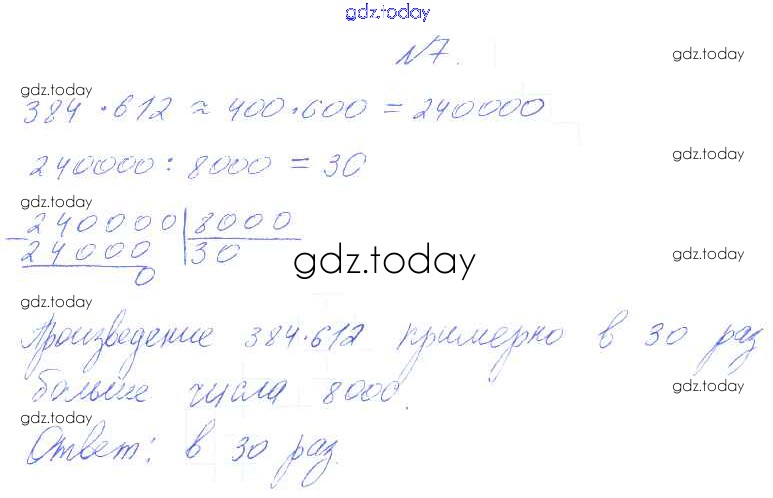 gdz.today
№7.
gdz.today
gdz.today
384·612 ≈ 400·600 = 240000
gdz.today
240000 : 8000 = 30
gdz.today
240000|8000
- 24000 |30
0
gdz.today
gdz.today
gdz.today
Произведение 384·612 примерно в 30 раз
больше числа 8000.
gdz.today
gdz.today
Ответ: в 30 раз.